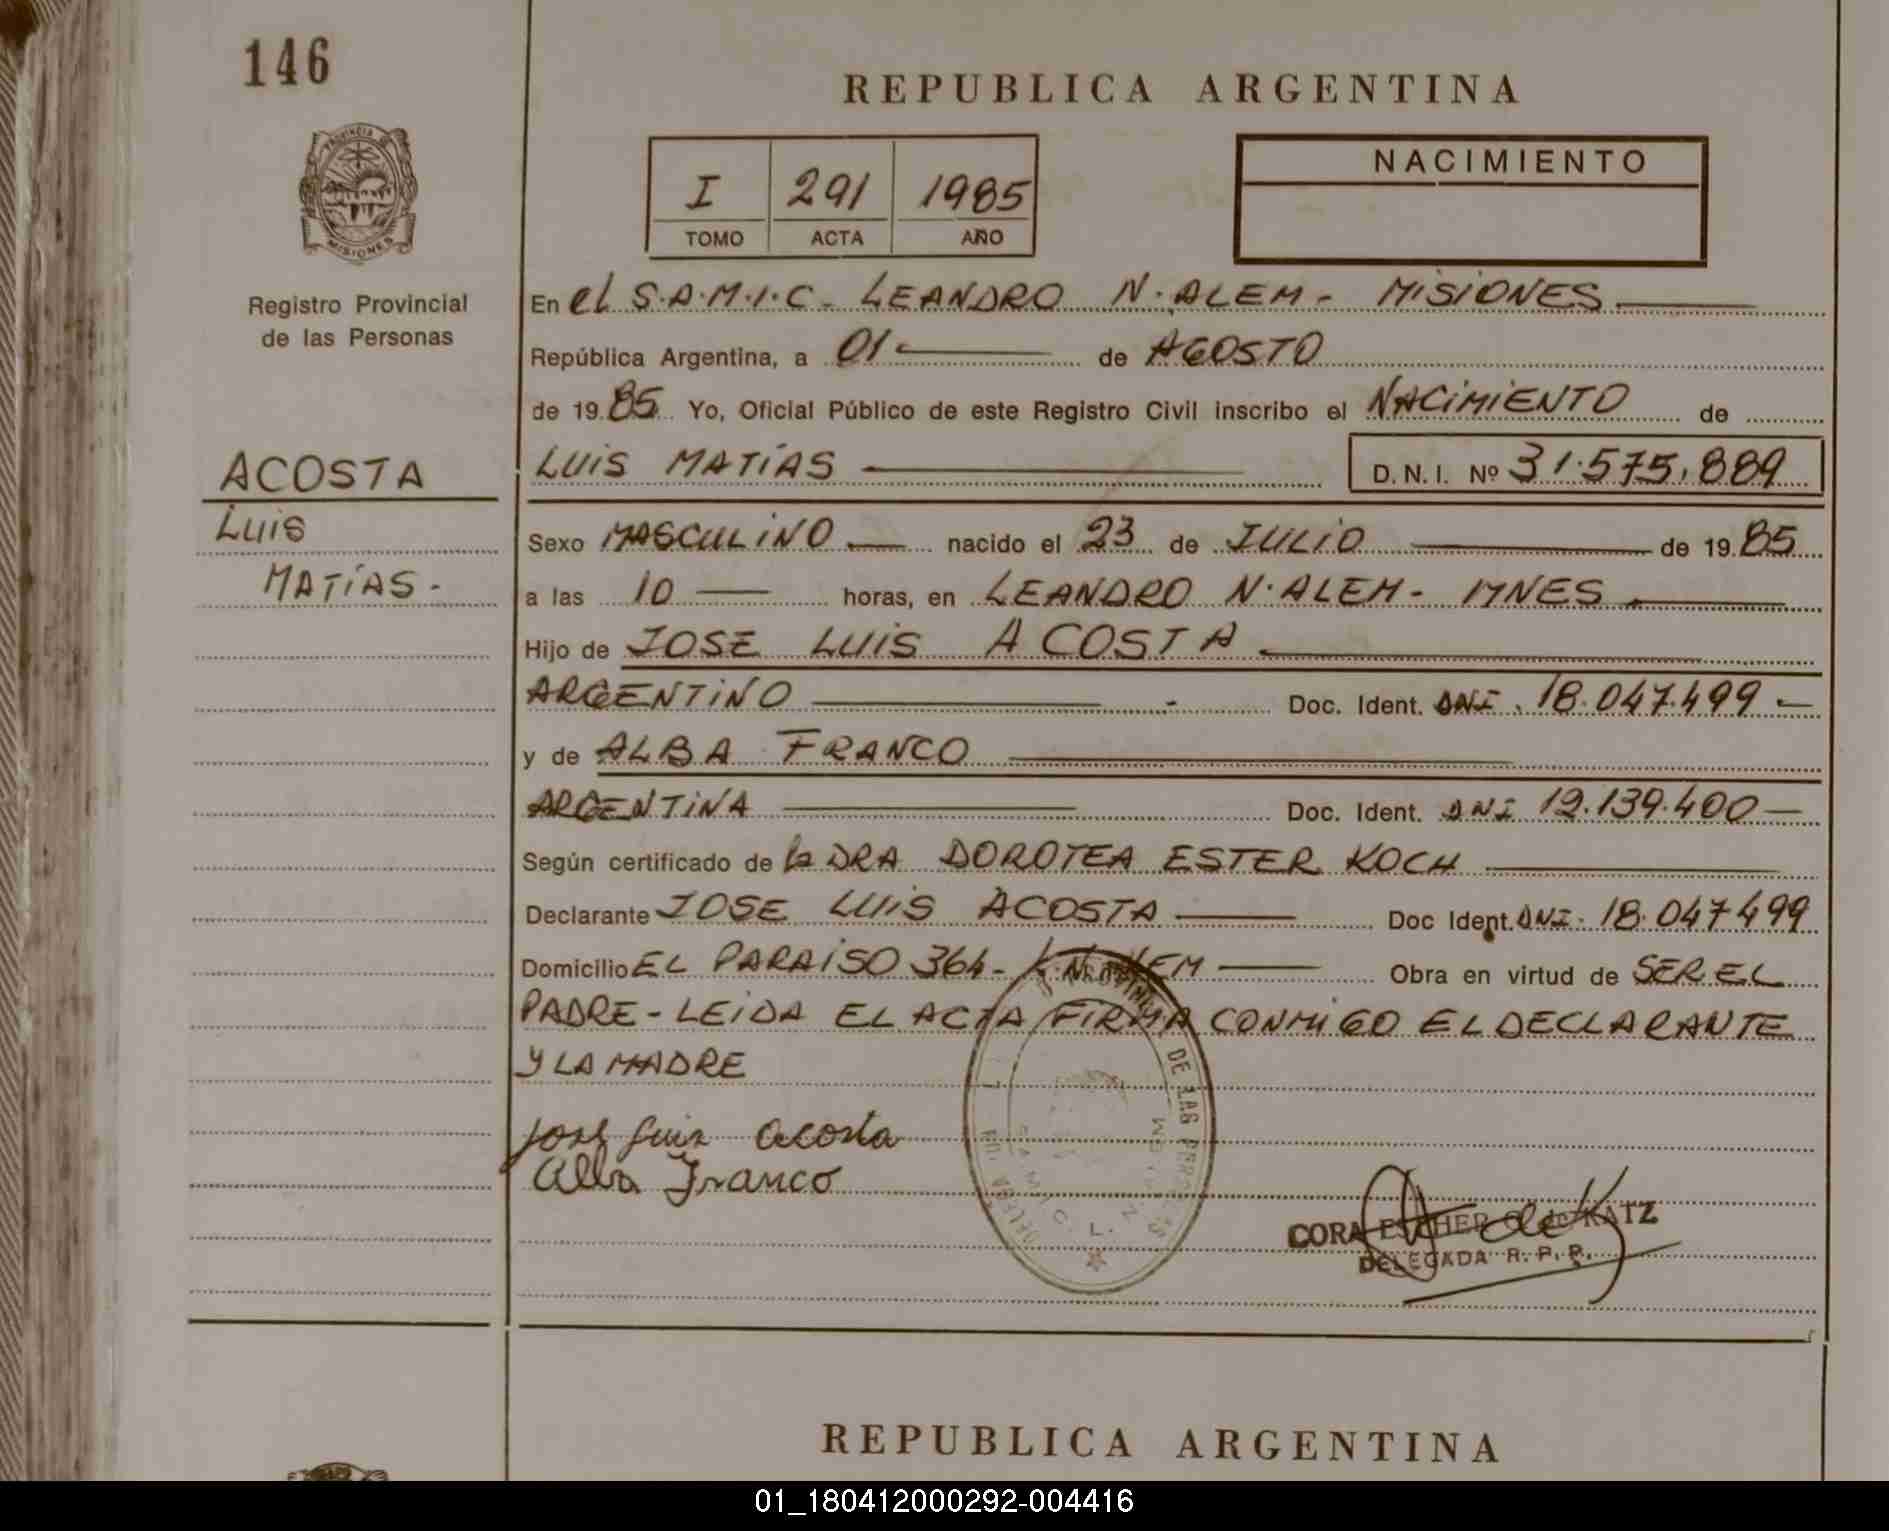 146
REPUBLICA ARGENTINA
PROVINCIA DE
MISIONES
Registro Provincial
de las Personas
I 291 1985
TOMO ACTA AÑO
NACIMIENTO
En el S.A.M.I.C - LEANDRO N. ALEM - MISIONES
República Argentina, a 01 de AGOSTO
de 19 85 Yo, Oficial Público de este Registro Civil inscribo el NACIMIENTO de
LUIS MATÍAS D.N.I. Nº 31.575.889
ACOSTA
LUIS
MATÍAS -
Sexo MASCULINO nacido el 23 de JULIO de 19 85
a las 10 horas, en LEANDRO N. ALEM - MNES
Hijo de JOSE LUIS ACOSTA
ARGENTINO - Doc. Ident. DNI. 18.047.499 -
y de ALBA FRANCO
ARGENTINA Doc. Ident. DNI 12.139.400 -
Según certificado de la DRA DOROTEA ESTER KOCH
Declarante JOSE LUIS ACOSTA Doc Ident. DNI. 18.047499
Domicilio EL PARAISO 364 - L.N. ALEM Obra en virtud de SER EL
PADRE - LEIDA EL ACTA FIRMA CONMIGO EL DECLARANTE
Y LA MADRE
Jose Luis Acosta
Alba Franco
DE LAS PERSONAS
S.A.M.I.C. L. N.
CORA ESTHER de KATZ
DELEGADA R. P. P.
REPUBLICA ARGENTINA
01_180412000292-004416